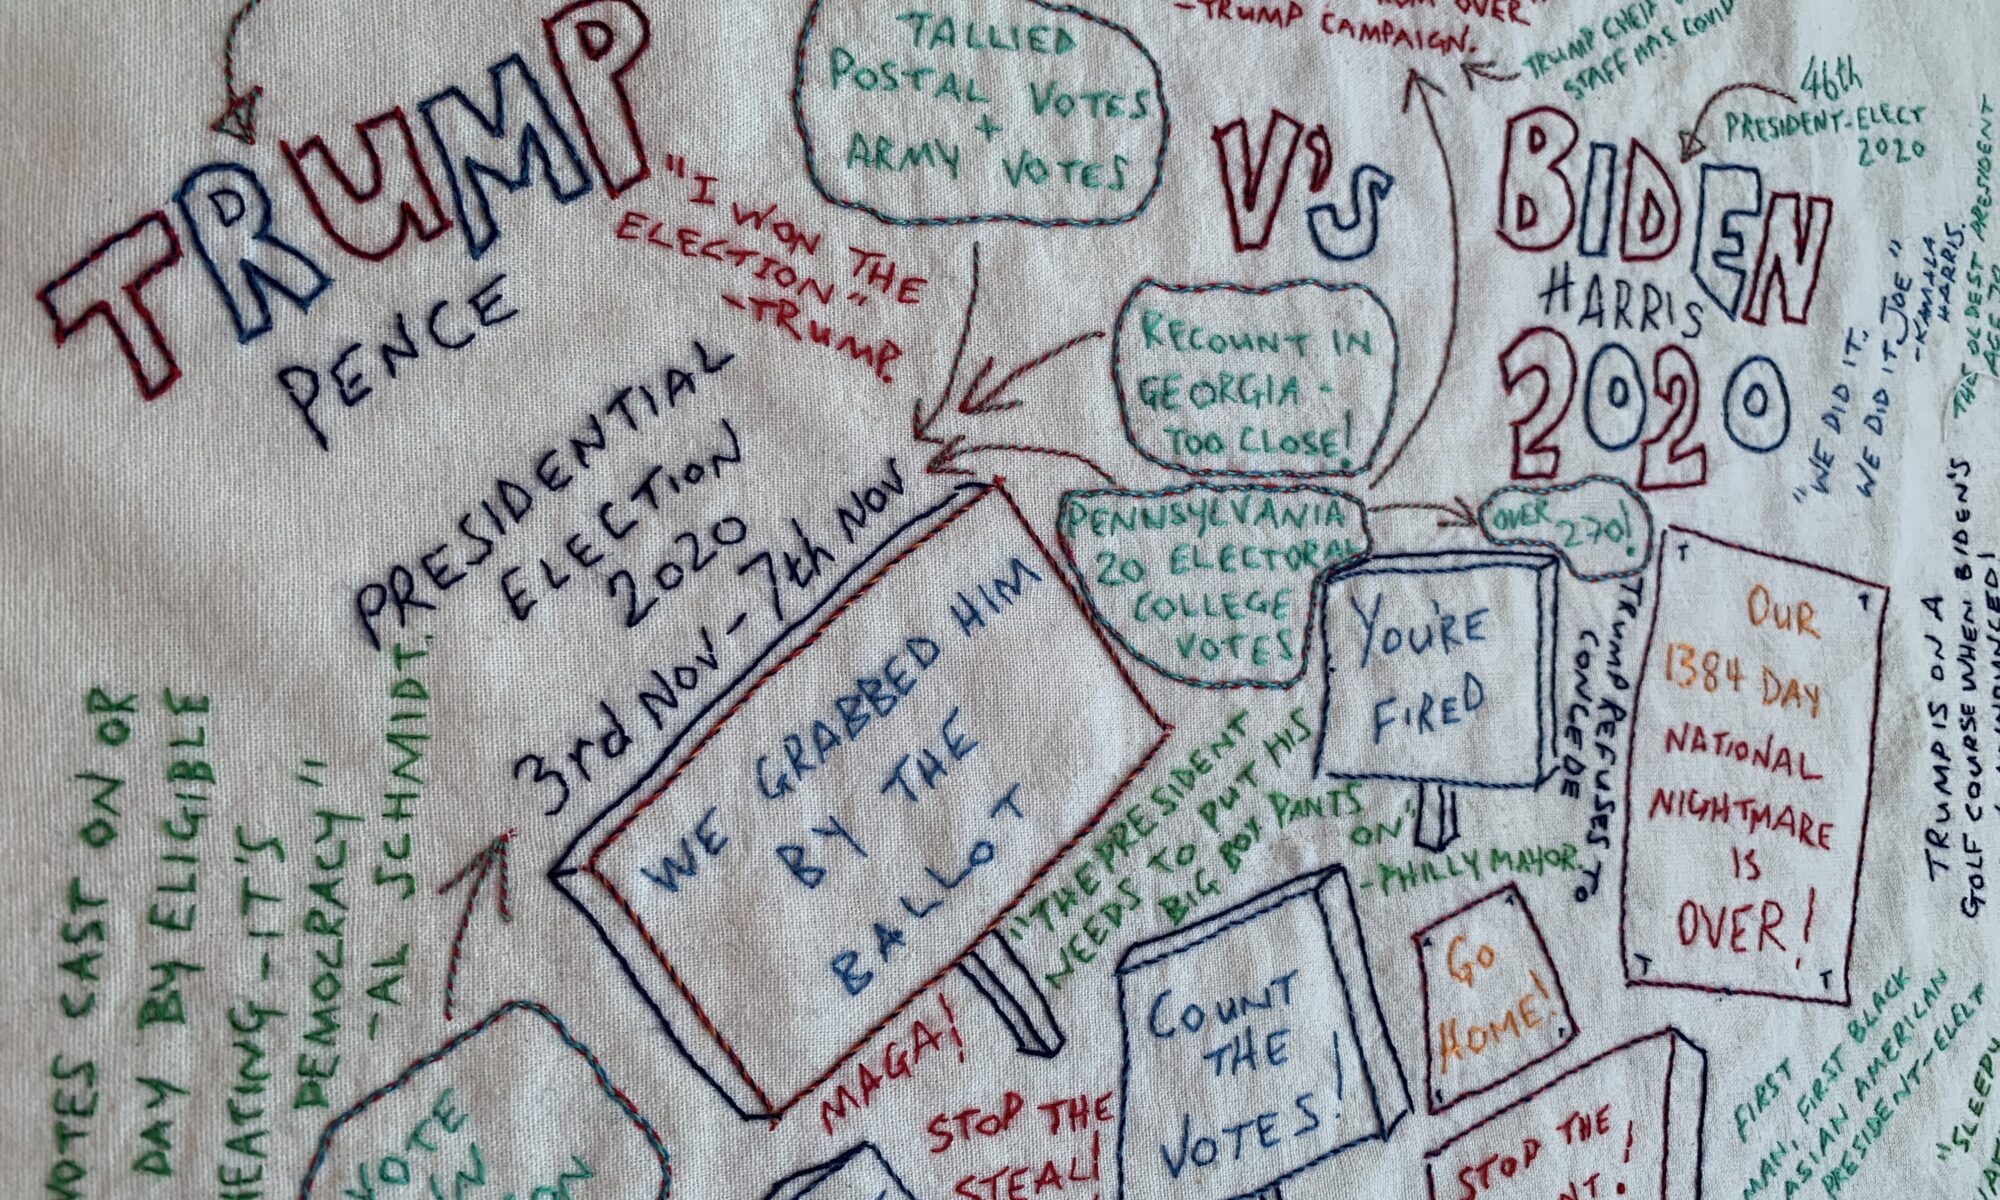 TRUMP
PENCE
"I WON THE
ELECTION"
-TRUMP.
TALLIED
POSTAL VOTES
+
ARMY VOTES
OVER"
-TRUMP CAMPAIGN.
TRUMP CHEIF
STAFF HAS COVID
V'S
46th
PRESIDENT-ELECT
2020
BIDEN
HARRIS
2020
"WE DID IT.
WE DID IT JOE"
-KAMALA
HARRIS.
THE OLDEST PRESIDENT
AGE
PRESIDENTIAL
ELECTION
2020
3rd NOV - 7th NOV
RECOUNT IN
GEORGIA -
TOO CLOSE!
PENNSYLVANIA
20 ELECTORAL
COLLEGE
VOTES
OVER
270!
WE GRABBED HIM
BY THE
BALLOT
YOU'RE
FIRED
TRUMP REFUSES TO
CONCEDE
OUR
1384 DAY
NATIONAL
NIGHTMARE
IS
OVER!
TRUMP IS ON A
GOLF COURSE WHEN BIDEN'S
"THE PRESIDENT
NEEDS TO PUT HIS
BIG BOY PANTS
ON"
-PHILLY MAYOR.
VOTES CAST ON OR
DAY BY ELIGIBLE
HEATING - IT'S
DEMOCRACY"
-AL SCHMIDT.
MAGA!
STOP THE
STEAL!
COUNT
THE
VOTES!
GO
HOME!
STOP THE
FIRST
MAN, FIRST BLACK
ASIAN AMERICAN
PRESIDENT-ELELT
"SLEEPY
VOTE